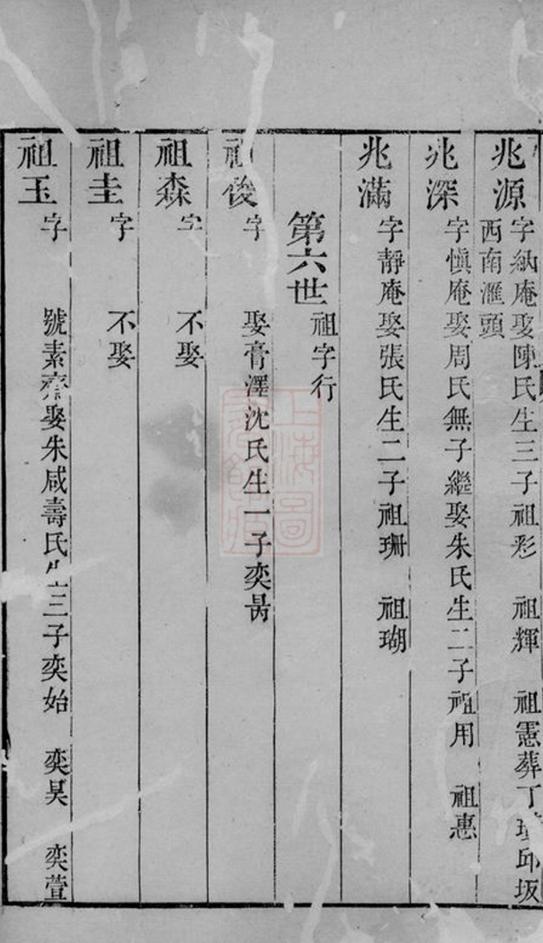 兆源 字紈庵娶陳氏生三子祖彩 祖輝 祖憲葬丁 邱坂
西南滙頭
兆深 字慎庵娶周氏無子繼娶朱氏生二子祖用 祖惠
兆滿 字靜庵娶張氏生二子祖珊 祖瑚
第六世 祖字行
祖俊 字 娶膏澤沈氏生一子奕昺
祖森 字 不娶
祖圭 字 不娶
祖玉 字 號素齋娶朱咸壽氏生三子奕始 奕昊 奕萱
上海圖